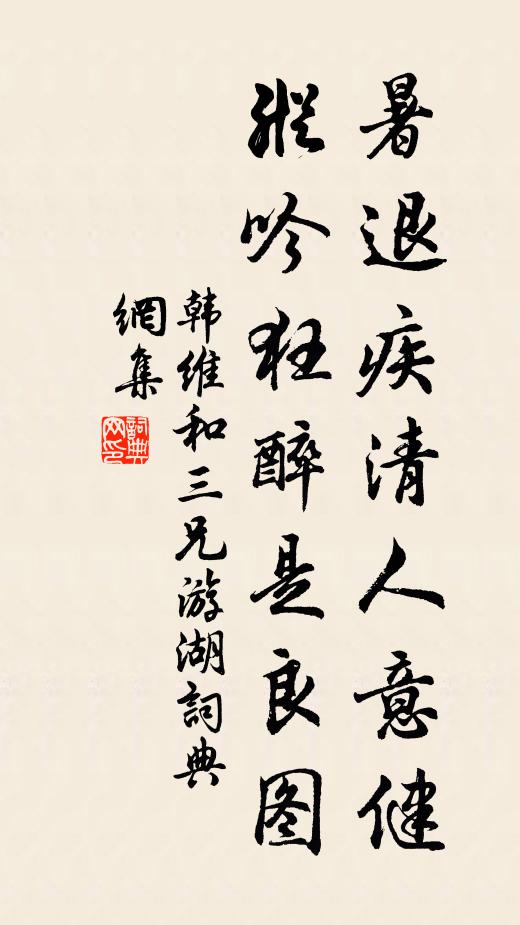 暑退疾清人意健
縱吟狂醉是良图
韩維和三兄游湖詞典
網集
詞典
网印